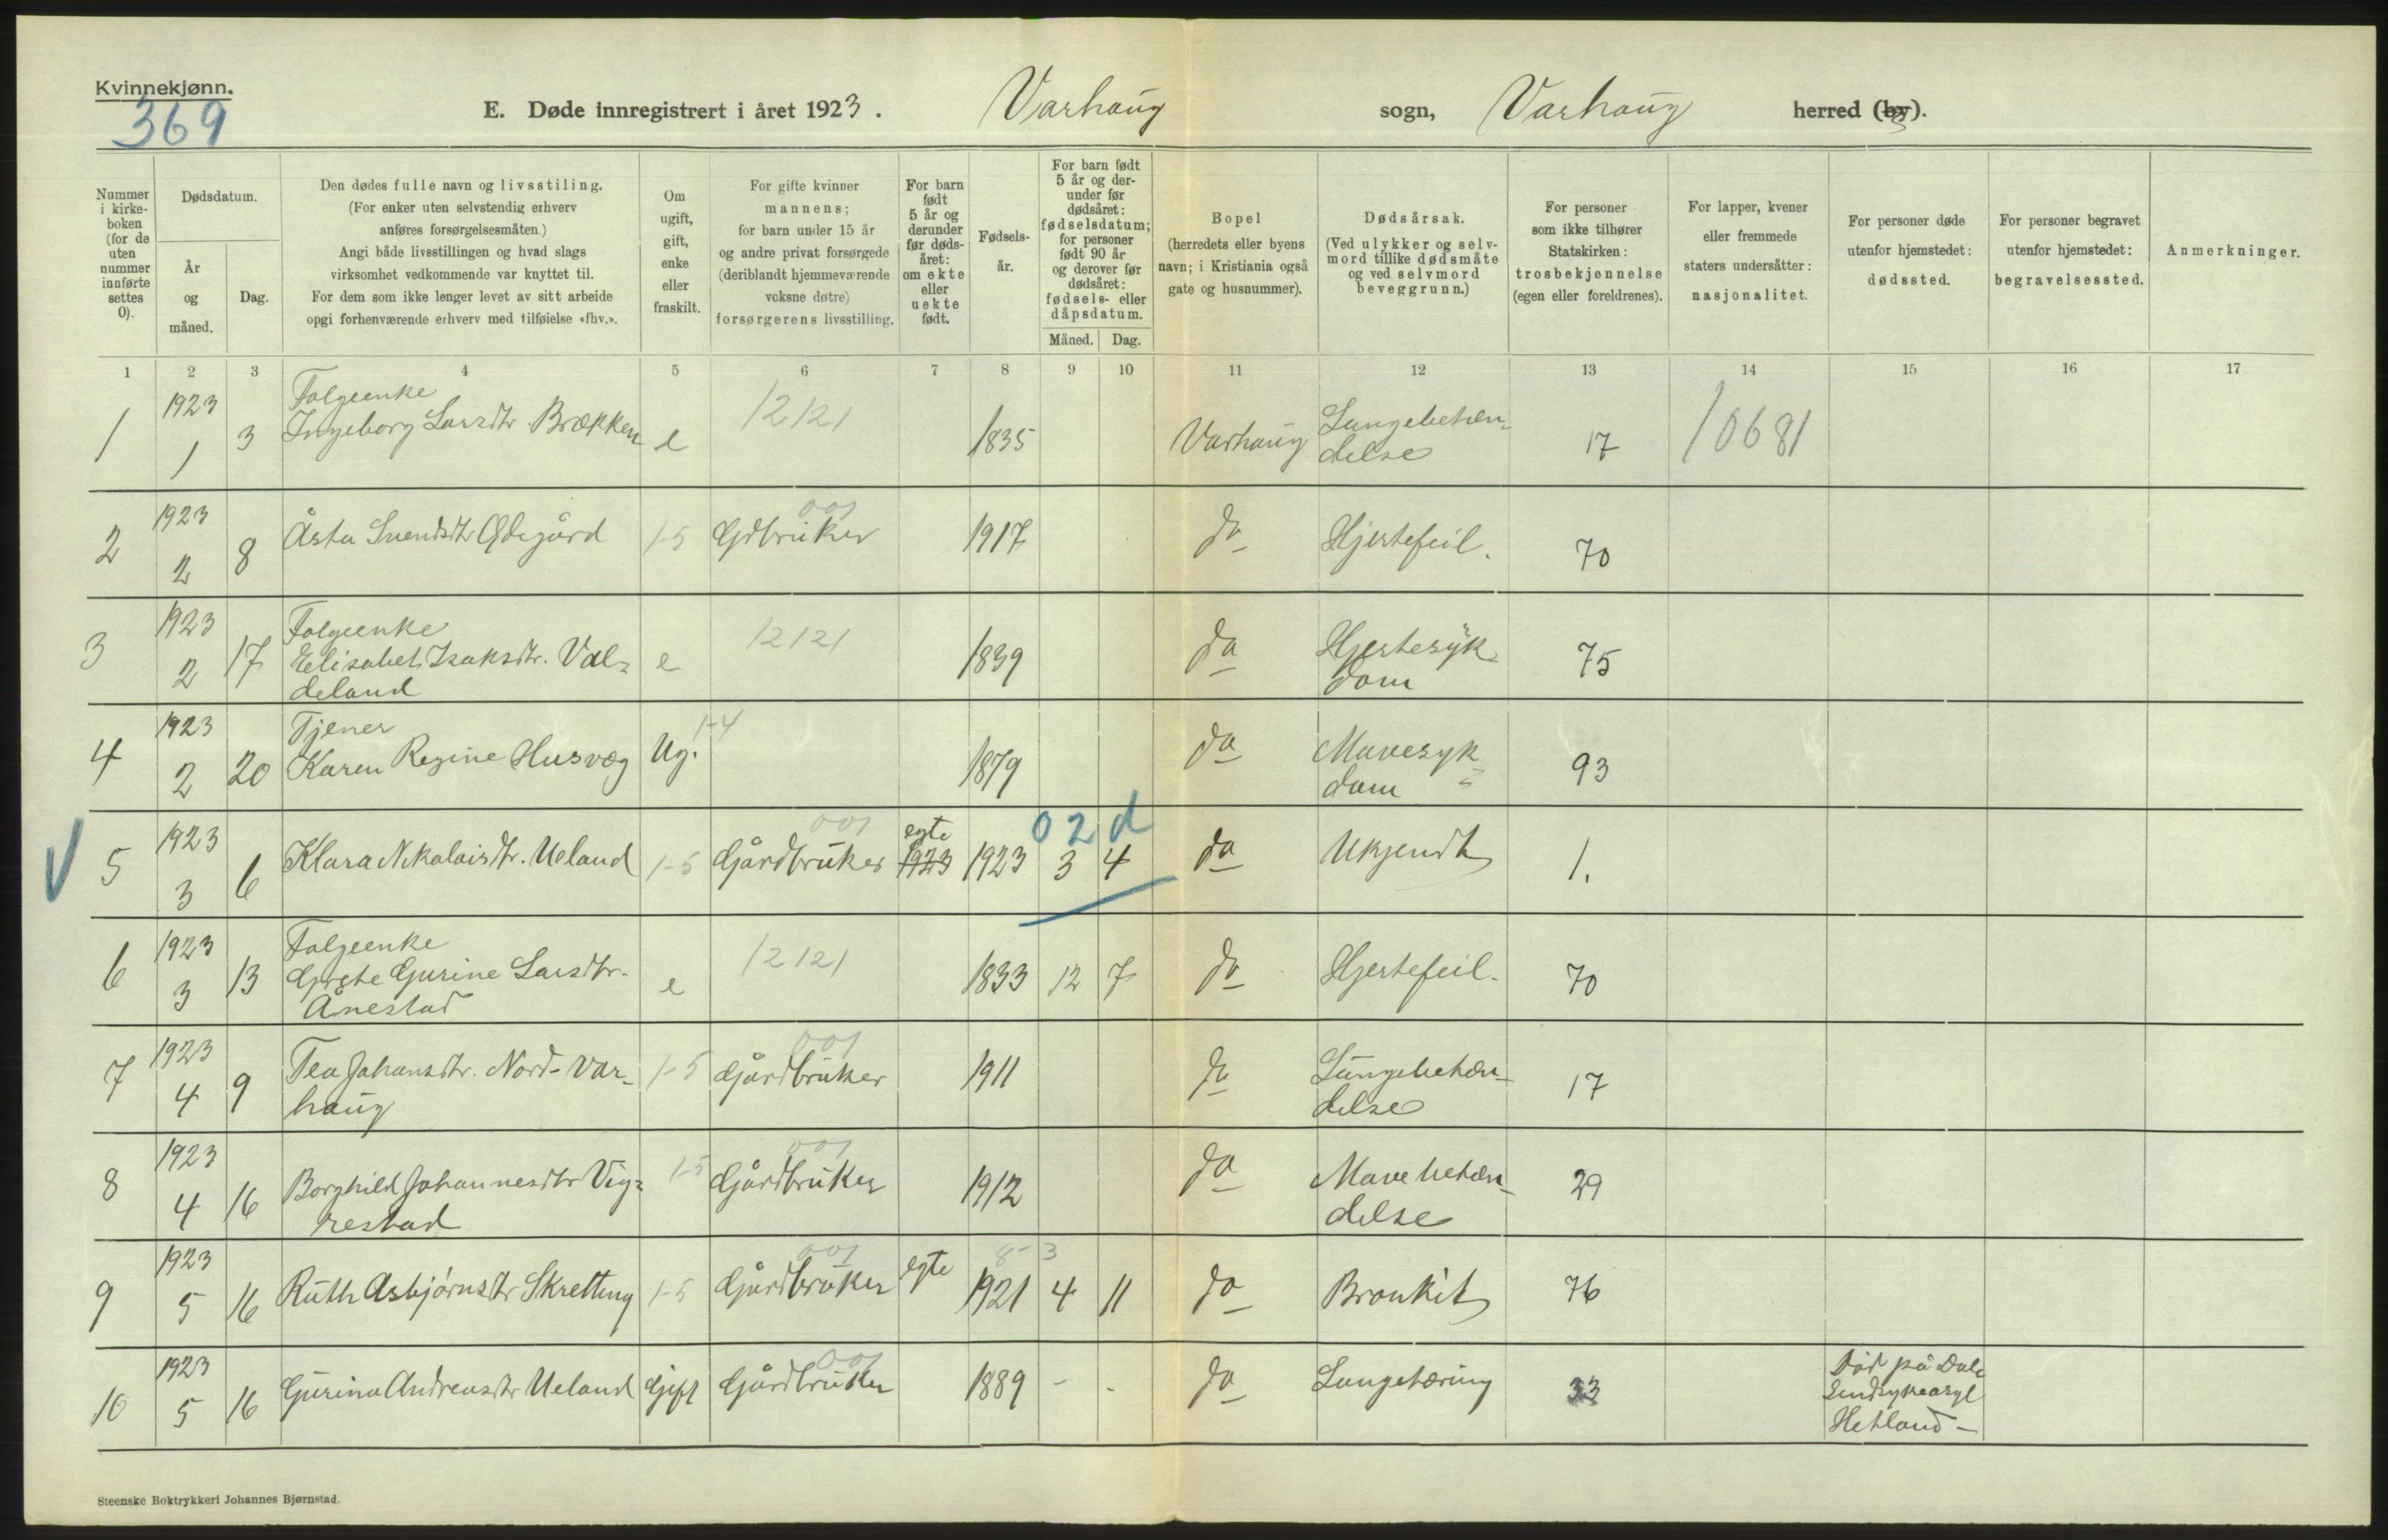 Kvinnekjønn.
369
E. Døde innregistrert i året 1923. Varhaug sogn, Varhaug herred (by).
Nummer i kirkeboken (for de uten nummer innførte settes 0).
Dødsdatum.
År og måned.
Dag.
Den dødes fulle navn og livsstiling.
(For enker uten selvstendig erhverv
anføres forsørgelsesmåten.)
Angi både livsstillingen og hvad slags
virksomhet vedkommende var knyttet til.
For dem som ikke lenger levet av sitt arbeide
opgi forhenværende erhverv med tilføielse «fhv.».
Om
ugift,
gift,
enke
eller
fraskilt.
For gifte kvinner
mannens;
for barn under 15 år
og andre privat forsørgede
(deriblandt hjemmeværende
voksne døtre)
forsørgerens livsstilling.
For barn
født
5 år og
derunder
før døds-
året:
om ekte
eller
uekte
født.
Fødsels-
år.
For barn født
5 år og der-
under før
dødsåret:
fødselsdatum;
for personer
født 90 år
og derover før
dødsåret:
fødsels- eller
dåpsdatum.
Måned. Dag.
Bopel
(herredets eller byens
navn; i Kristiania også
gate og husnummer).
Dødsårsak.
(Ved ulykker og selv-
mord tillike dødsmåte
og ved selvmord
beveggrunn.)
For personer
som ikke tilhører
Statskirken:
trosbekjennelse
(egen eller foreldrenes).
For lapper, kvener
eller fremmede
staters undersåtter:
nasjonalitet.
For personer døde
utenfor hjemstedet:
dødssted.
For personer begravet
utenfor hjemstedet:
begravelsessted.
Anmerkninger.
1 2 3 4 5 6 7 8 9 10 11 12 13 14 15 16 17
1 1923 1 3 Folgeenke Ingeborg Larsdtr. Brækken e 12121 1835 Varhaug Lungebetæn-delse 17 10681
2 1923 2 8 Åsta Svendsdtr Ødegård 1-5 Gdbruker 001 1917 do Hjertefeil. 70
3 1923 2 17 Folgeenke Elisabet Isaksdtr. Val-deland e 12121 1839 do Hjertesyk-dom 75
4 1923 2 20 Tjener Karen Regine Husvæg Ug. 1-4 1879 do Mavesyk-dom 93
5 1923 3 6 Klara Nikolaisdtr. Ueland 1-5 Gårdbruker 001 egte 1923 1923 3 4 02d do Ukjendt 1.
6 1923 3 13 Folgeenke Grete Gurine Larsdtr. Ånestad e 12121 1833 12 7 do Hjertefeil. 70
7 1923 4 9 Tea Johansdtr. Nord-Var-haug 1-5 Gårdbruker 001 1911 do Lungebetæn-delse 17
8 1923 4 16 Borghild Johannesdtr Vig-restad 1-5 Gårdbruker 001 1912 do Mavebetæn-delse 29
9 1923 5 16 Ruth Asbjørnsdtr Skretting 1-5 Gårdbruker 001 egte 1921 8-3 4 11 do Bronkit 76
10 1923 5 16 Gurina Andreasdtr Ueland Gift Gårdbruker 001 1889 - - do Lungetæring 33 Død på Dale Sindsykeasyl Hetland -
Steenske Boktrykkeri Johannes Bjørnstad.